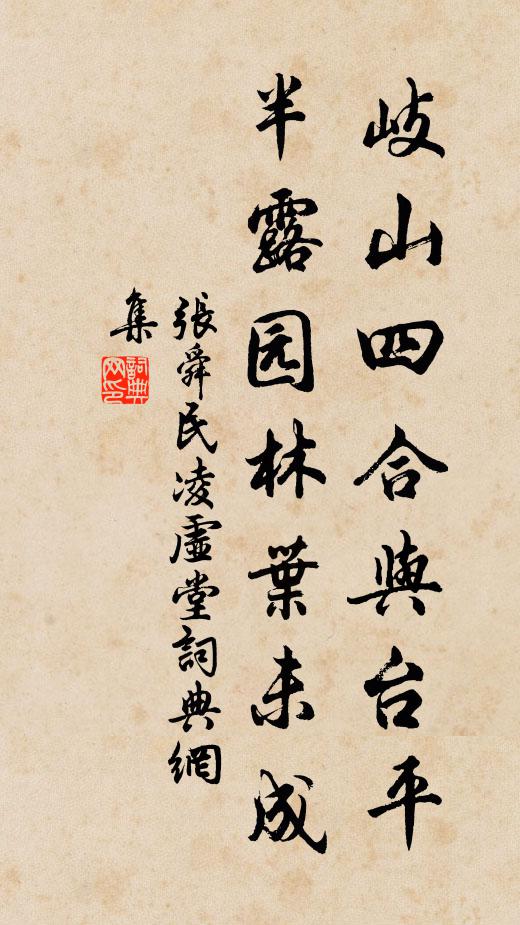 岐山四合與台平
半露园林葉未成
張舜民凌虛堂詞典網
集
詞典
网印